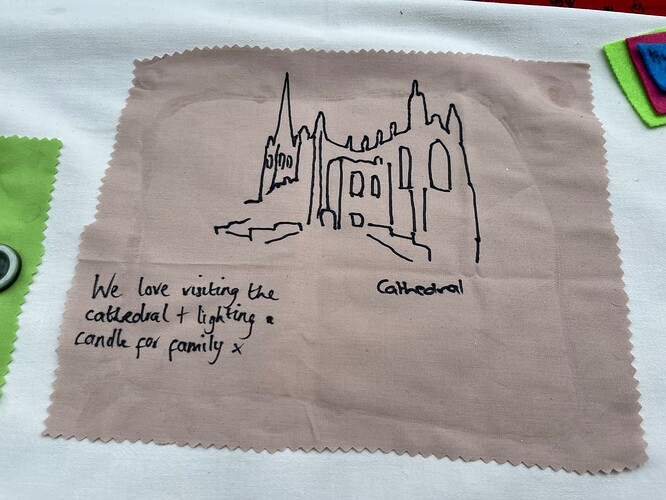 We love visiting the
cathedral + lighting a
candle for family x
Cathedral